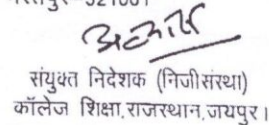 321001
संयुक्त निदेशक (निजी संस्था)
कॉलेज शिक्षा, राजस्थान, जयपुर।